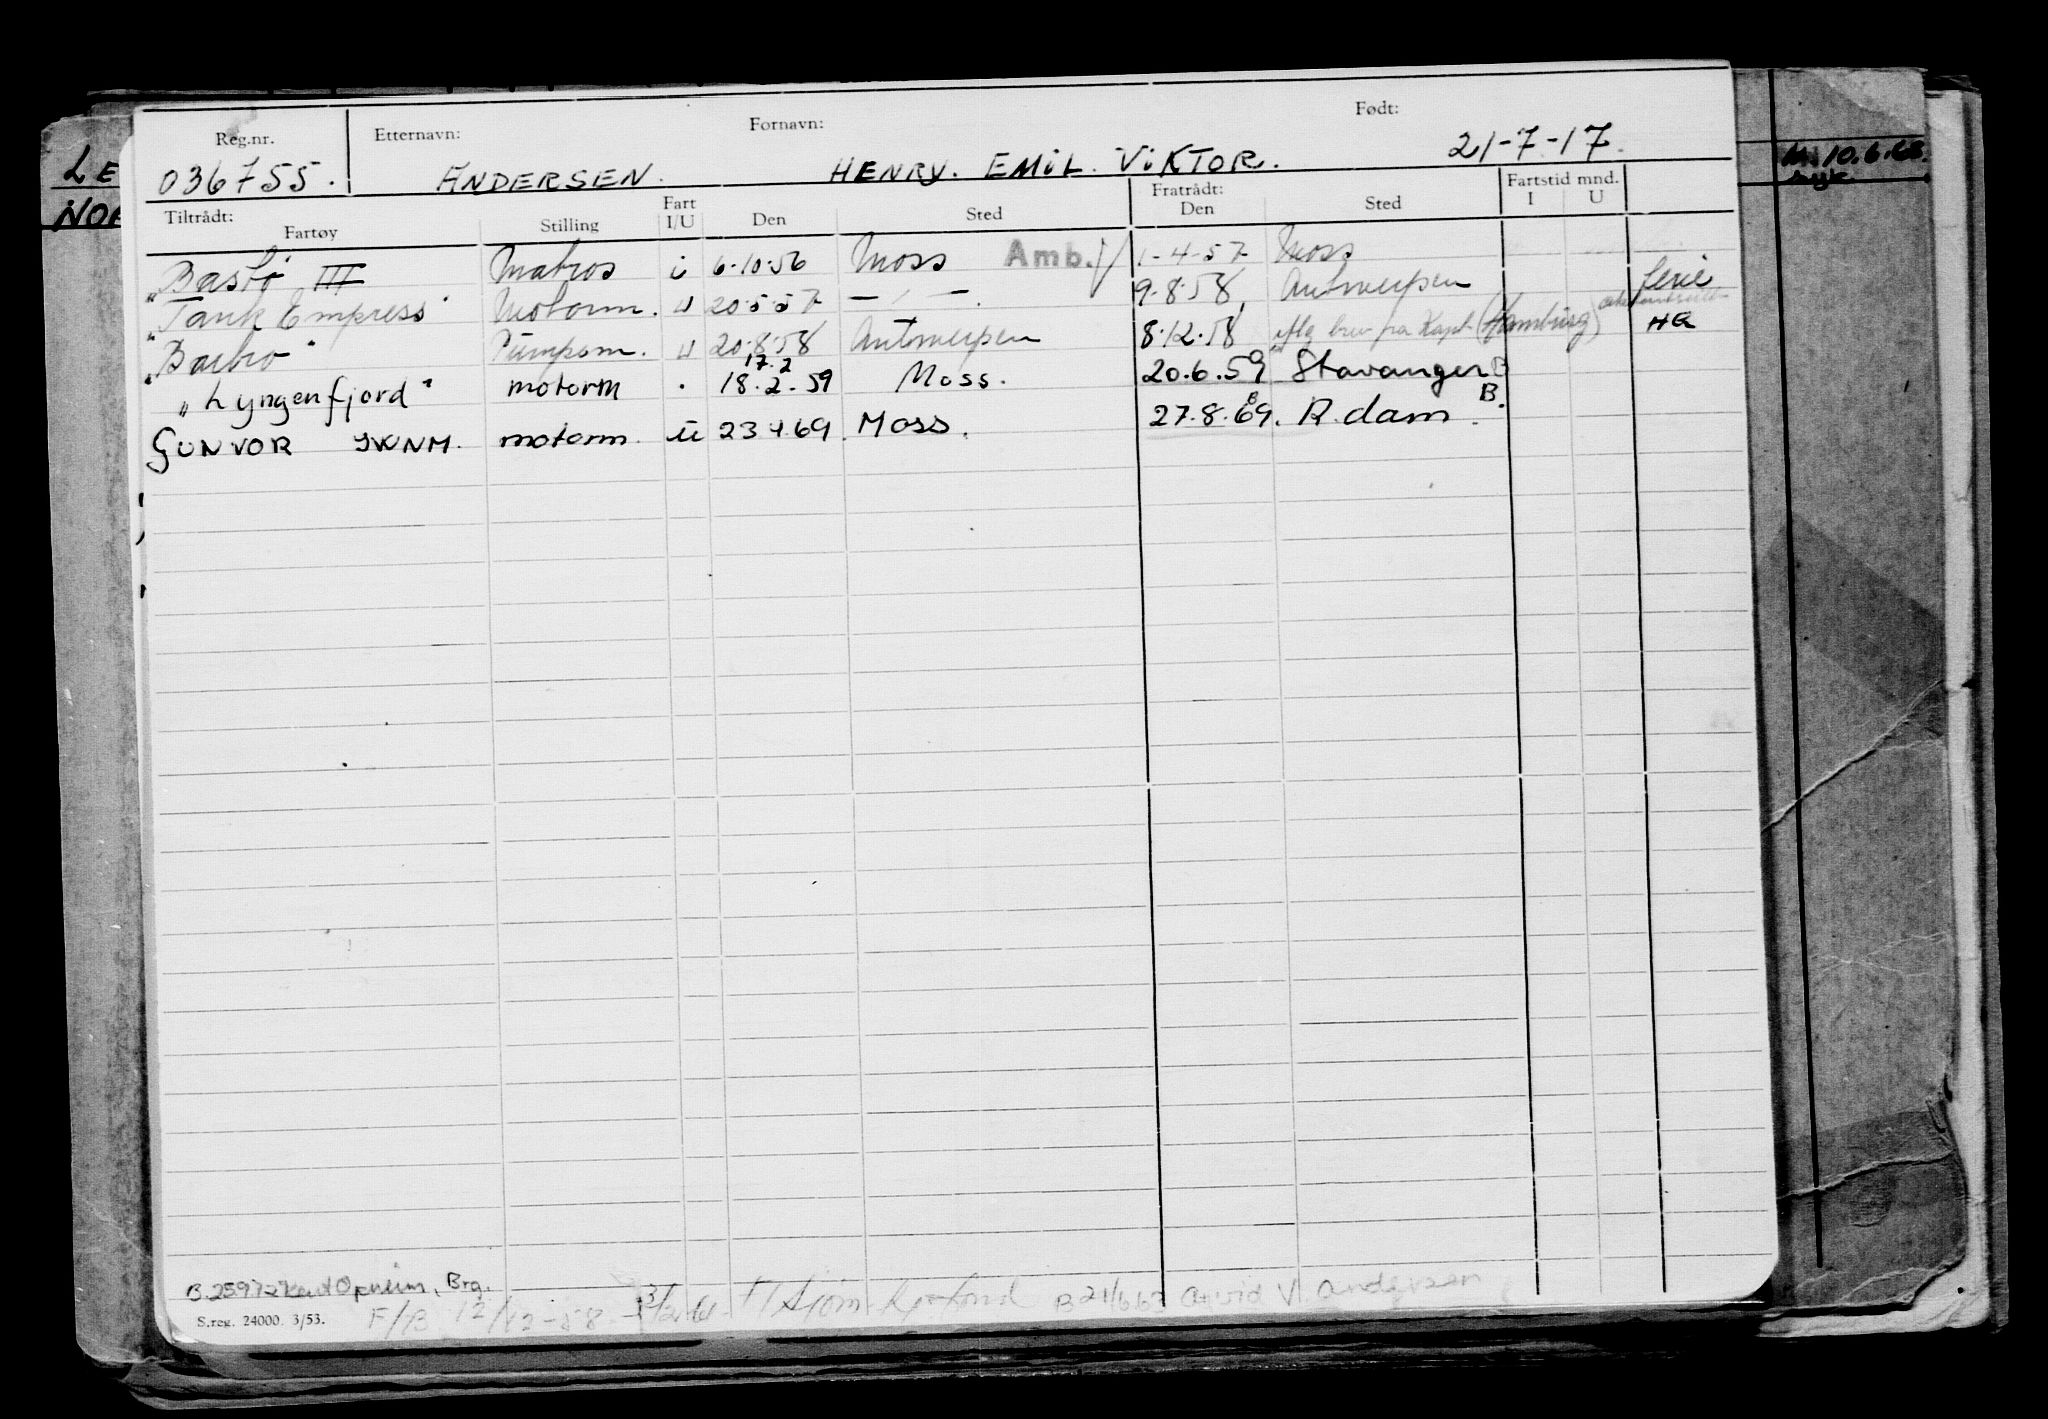 Reg.nr. Etternavn: Fornavn: Født:
036755. ANDERSEN. HENRY. EMIL. VIKTOR. 21-7-17.
Tiltrådt: Fartøy Stilling Fart I/U Den Sted Fratrådt: Den Sted Fartstid mnd. I U
"Bastø III Matros i 6-10-56 Moss Amb. 1-4-57 Moss
"Tank Empress" Motorm. U 20-5-57 — " —. 9-8-58 Antwerpen ferie
"Barbro" Pumpem. U 20-8-58 Antwerpen 8-12-58 iflg brev fra Kapt. (Hamburg) HG
17.2
"Lyngenfjord" motorm 18.2.59 Moss. 20.6.59 Stavanger B
GUNVOR JWNM. motorm. U 23 4 69. Moss. 27.8.69. R.dam. B.
B. 25972 Knut Opheim, Brg.
S.reg. 24000. 3/53. F/B 12/12-58 B 21/6.63 Arvid V. Andersen
LE
NOR
10.6.68.